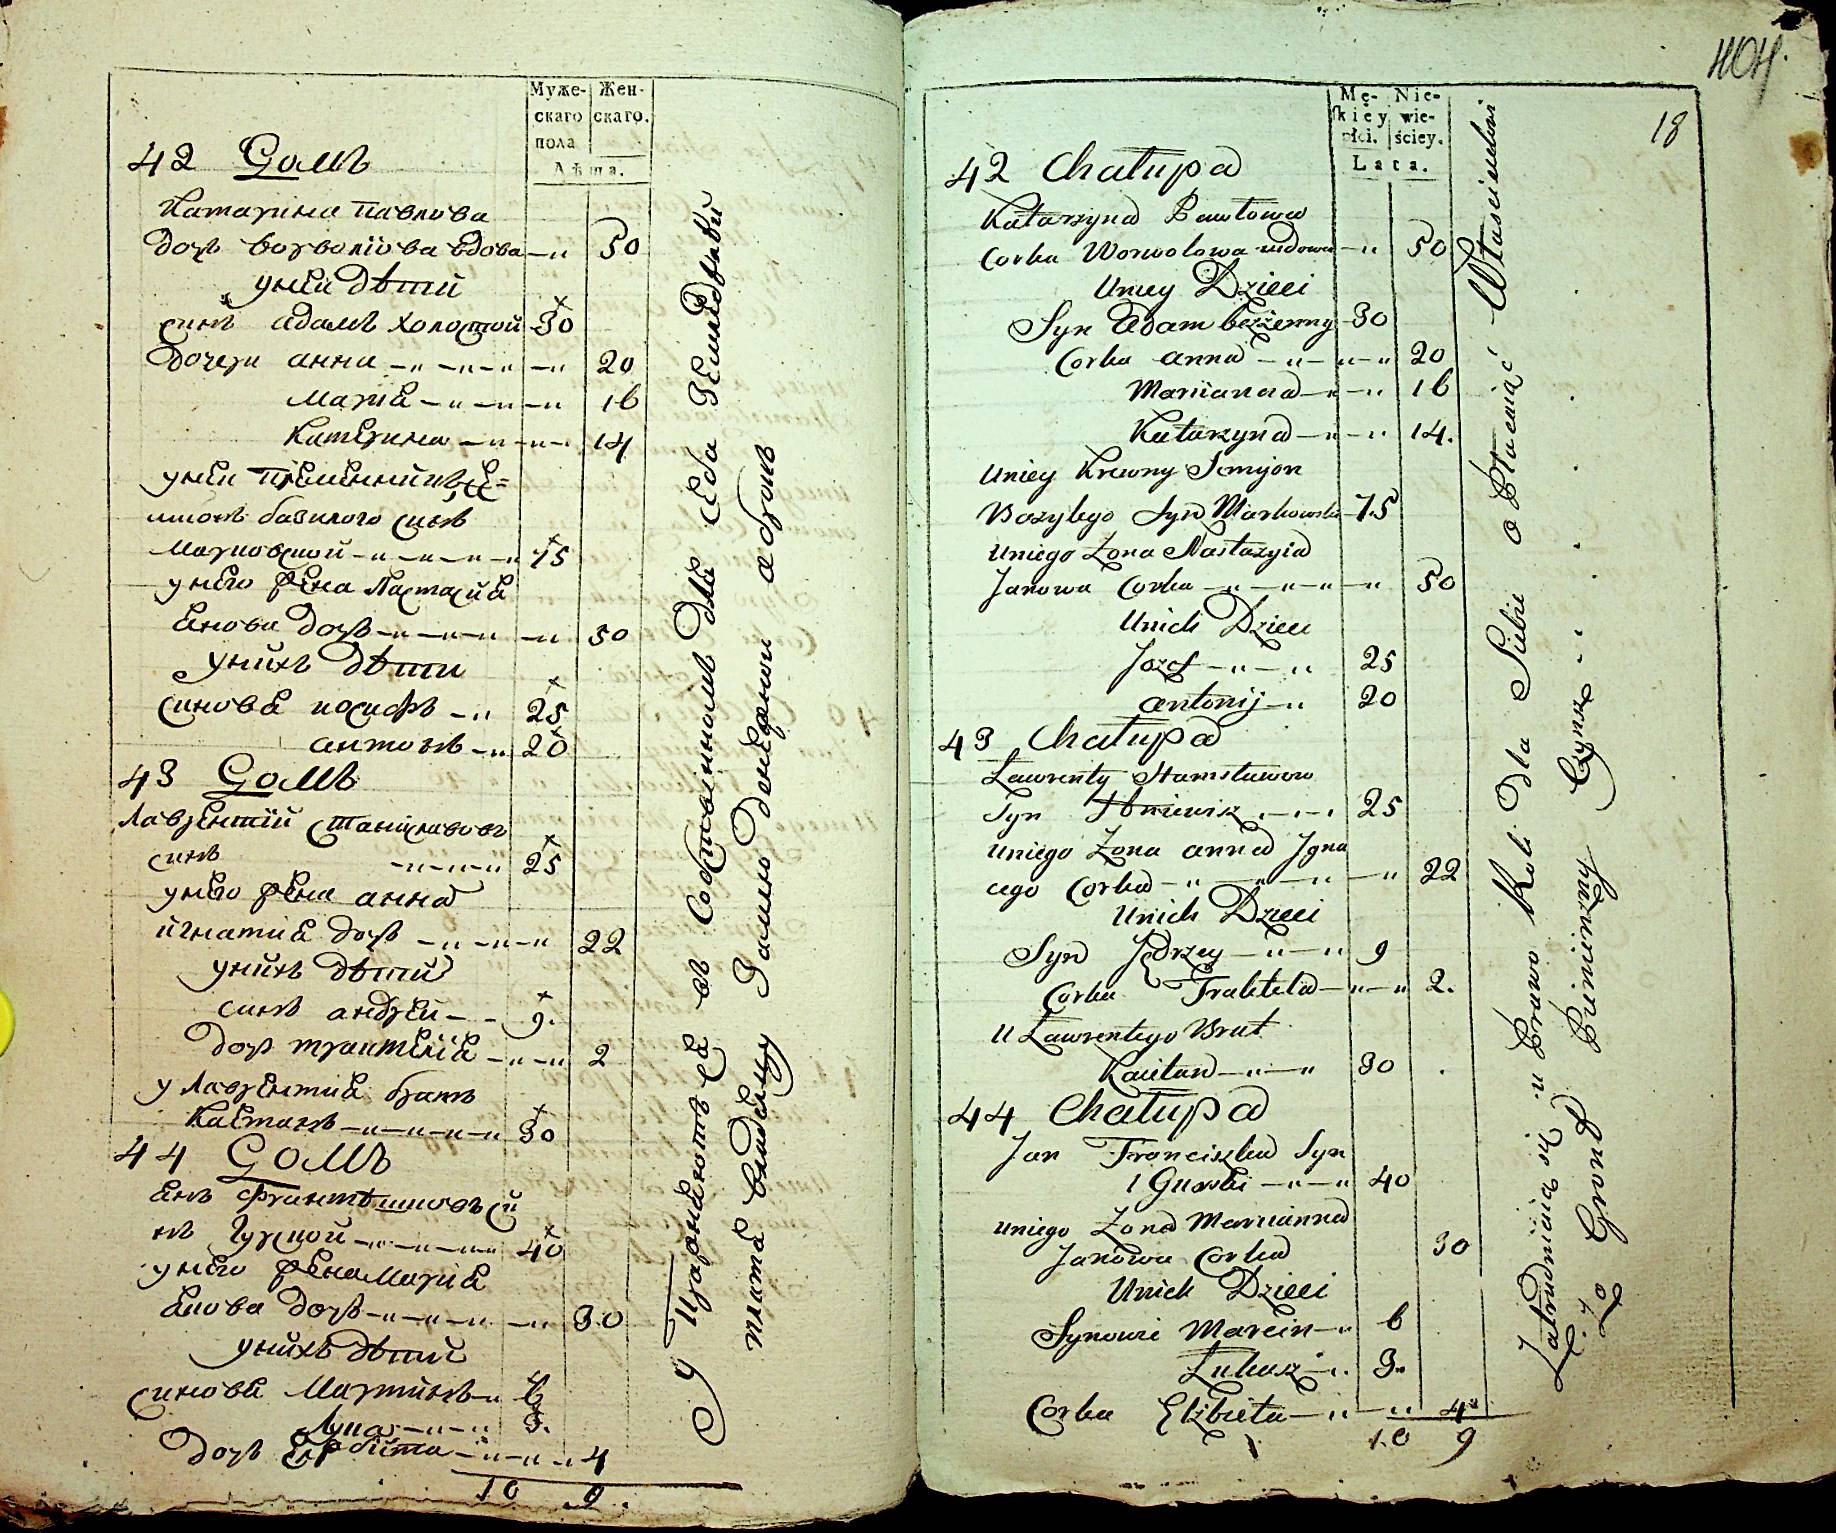 Муже-
скаго
пола
Жен-
скаго.
Лѣта.
42 Домъ
Катарина Павлова
дочь Ворволіова вдова — „ 50
у неи дѣти
синъ Адамъ холостой 30
дочери анна — „ — „ — „ 20
Марія — „ — „ — „ 16
Катерина — „ — „ — 14
у неи племенникъ Се=
міонъ базилого синъ
Марковской — „ — „ — „ 75
у него жена Настасия
Янова дочь — „ — „ — „ 50
у нихъ дѣти
синовя иосифъ — „ 25
антонъ — „ 20
43 Домъ
Лаврентий Станиславовъ
синъ — „ — „ 25
у него жена анна
игнатия дочь — „ — „ — „ 22
у нихъ дѣти
синъ андрей — 9.
дочь транкелия — „ — „ 2
у Лаврентия братъ
Каетанъ — „ — „ — „ 30
44 Домъ
Янъ Франтишковъ си
нъ Гурской — „ — „ — „ 40
у него жена Мария
Янова дочь — „ — „ — „ 30
у нихъ дѣти
синовя Мартинъ — „ 6
Лука — „ — „ 3.
дочь Елжбита — „ — „ 4
10 9.
Упражняются въ Состоиннамъ для себя Земледелии
плата владелцу Замлю денежнои аброкъ
404.
18
Mę-
skiey
płci.
Nie-
wie-
ściey.
Lata.
42 Chałupa
Katarzyna Pawłowa
Corka Worwolowa wdowa — „ 50
Uniey Dzieci
Syn Adam bezżenny 30
Corka anna — „ — „ — „ 20
Marianna — „ — „ 16
Katarzyna — „ — „ 14.
Uniey Krewny Semyon
Bazylego Syn Markowski 75
Uniego Zona Nastazyia
Janowa Corka — „ — „ — „ 50
Unich Dzieci
Jozef — „ — „ 25
antonij — „ 20
43 Chałupa
Ławrenty Stanisławow
Syn 25
Uniego Zona anna Jgna
cego Corka — „ — „ — „ 22
Unich Dzieci
Syn Jędrzey — „ — „ 9
Corka Traktela — „ — „ 2.
U Ławrentego Brat
Kaietan — „ — „ 30
44 Chałupa
Jan Franciszka Syn
Gurski — „ — „ 40
Uniego Zona Marianna
Janowa Corka 30
Unich Dzieci
Synowie Marcin — „ 6
Łukasz — „ 3.
Corka Elżbieta — „ — „ 4
10 9
Zatrudniaia się u Prawo Roli Dla Siebie a Płacniać Właścicielowi
Za Gront Pieniezny Czynsz